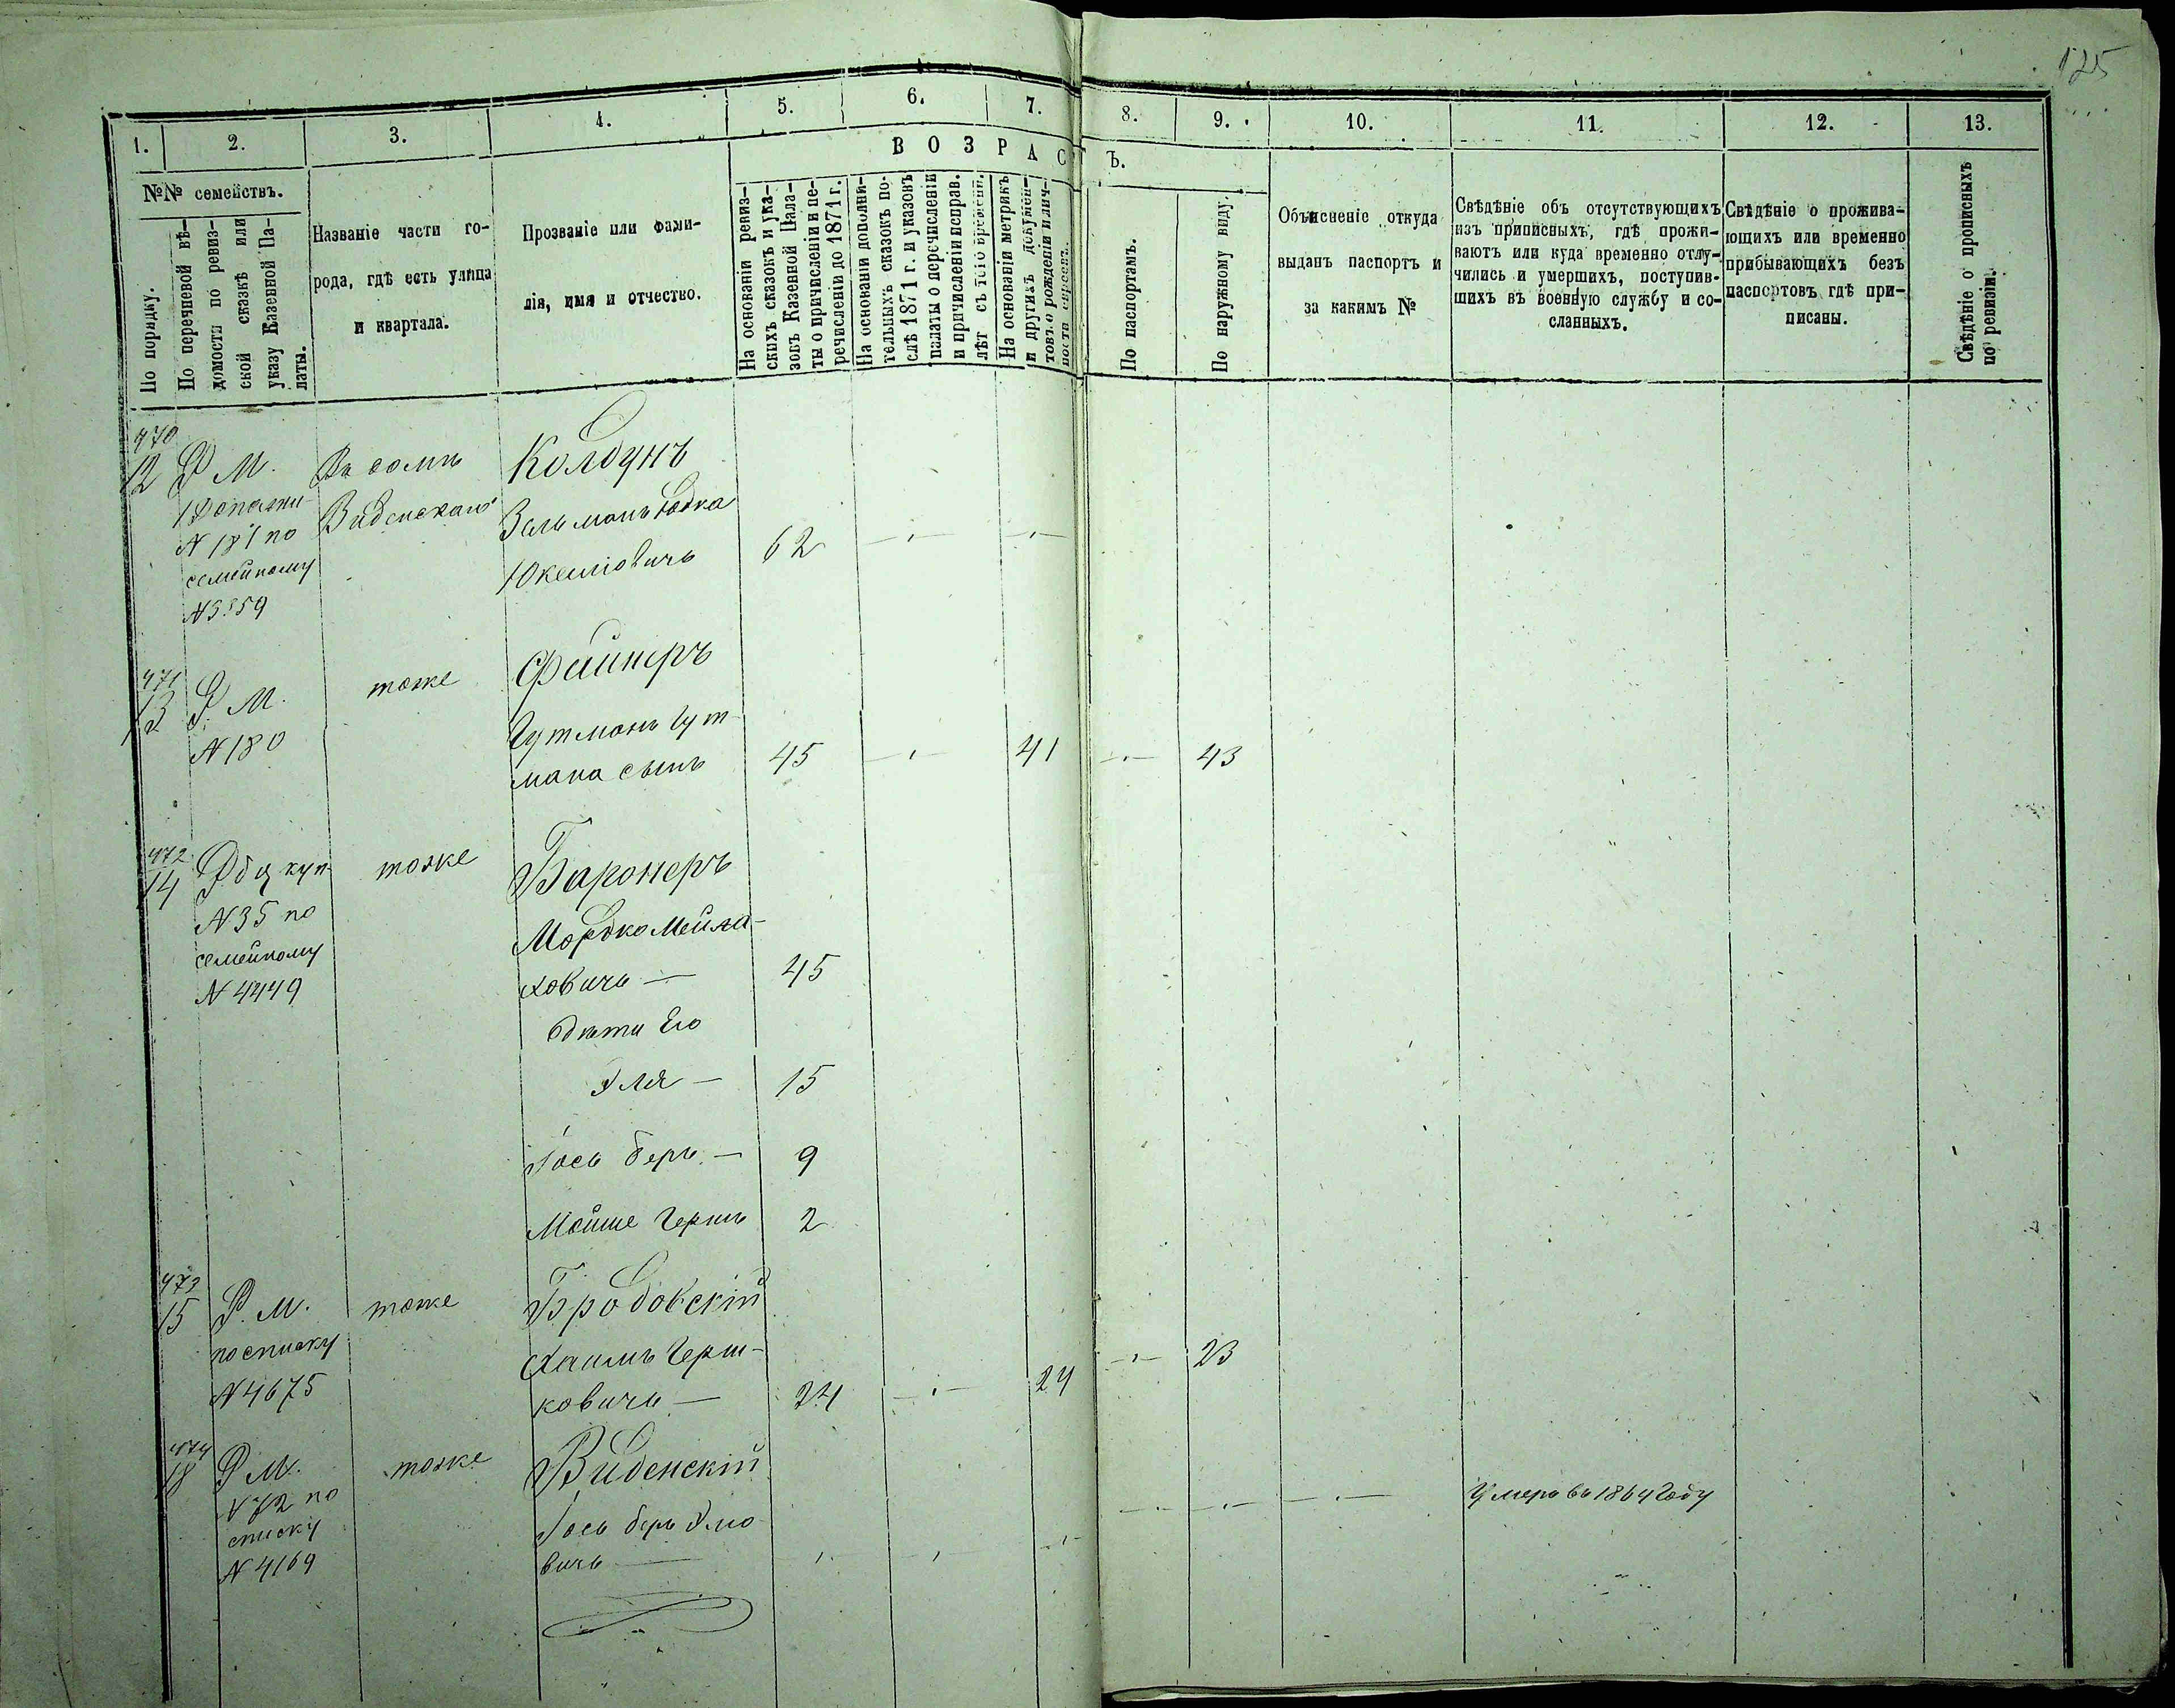 125
1.
2.
3.
4.
5.
6.
7.
8.
9.
10.
11.
12.
13.
ВОЗРАС
Ъ.
№№ семействъ.
По порядку.
По перечневой вѣ-
домости по ревиз-
ской сказкѣ или
указу Казенной Па-
латы.
Названіе части го-
рода, гдѣ есть улица
и квартала.
Прозваніе или фами-
лія, имя и отчество.
На основаніи ревиз-
скихъ сказокъ и ука-
зовъ Казенной Пала-
ты о причисленіи и пе-
речисленіи до 1871 г.
На основаніи дополни-
тельныхъ сказокъ по-
слѣ 1871 г. и указовъ
палаты о перечисленіи
и причисленіи исправ.
лѣт съ того времени.
На основаніи метрикъ
и другихъ докумен-
товъ о рожденіи и лич-
ности евреевъ.
По паспортамъ.
По наружному виду.
Объясненіе откуда
выданъ паспортъ и
за какимъ №
Свѣдѣніе объ отсутствующихъ
изъ приписныхъ, гдѣ прожи-
ваютъ или куда временно отлу-
чились и умершихъ, поступив-
шихъ въ военную службу и со-
сланныхъ.
Свѣдѣніе о прожива-
ющихъ или временно
прибывающихъ безъ
паспортовъ гдѣ при-
писаны.
Свѣдѣніе о прописныхъ
по ревизіи.
470
12 Р М. Колдунъ
N 181 по Зельманъ Юдка
семейному 62
N 3859
471
13 Р. М. тоже Файнеръ
N 180 Гутманъ Гут-
мана сынъ 45 41 43
472
14 тоже Баронеръ
N 35 по Мордко Мейла-
семейному ховичъ — 45
N 4449
дѣти Его
Эля — 15
Іось беръ — 9
Мойше Гершъ 2
473
15 Р. М. тоже Бродовскій
по списку Хаимъ Герш-
N 4675 ковичъ — 24 24 23
474
18 Р М. тоже Виденскій
N 72 по Іось беръ Элио
списку вичъ — Умеръ въ 1864 Году
N 4169